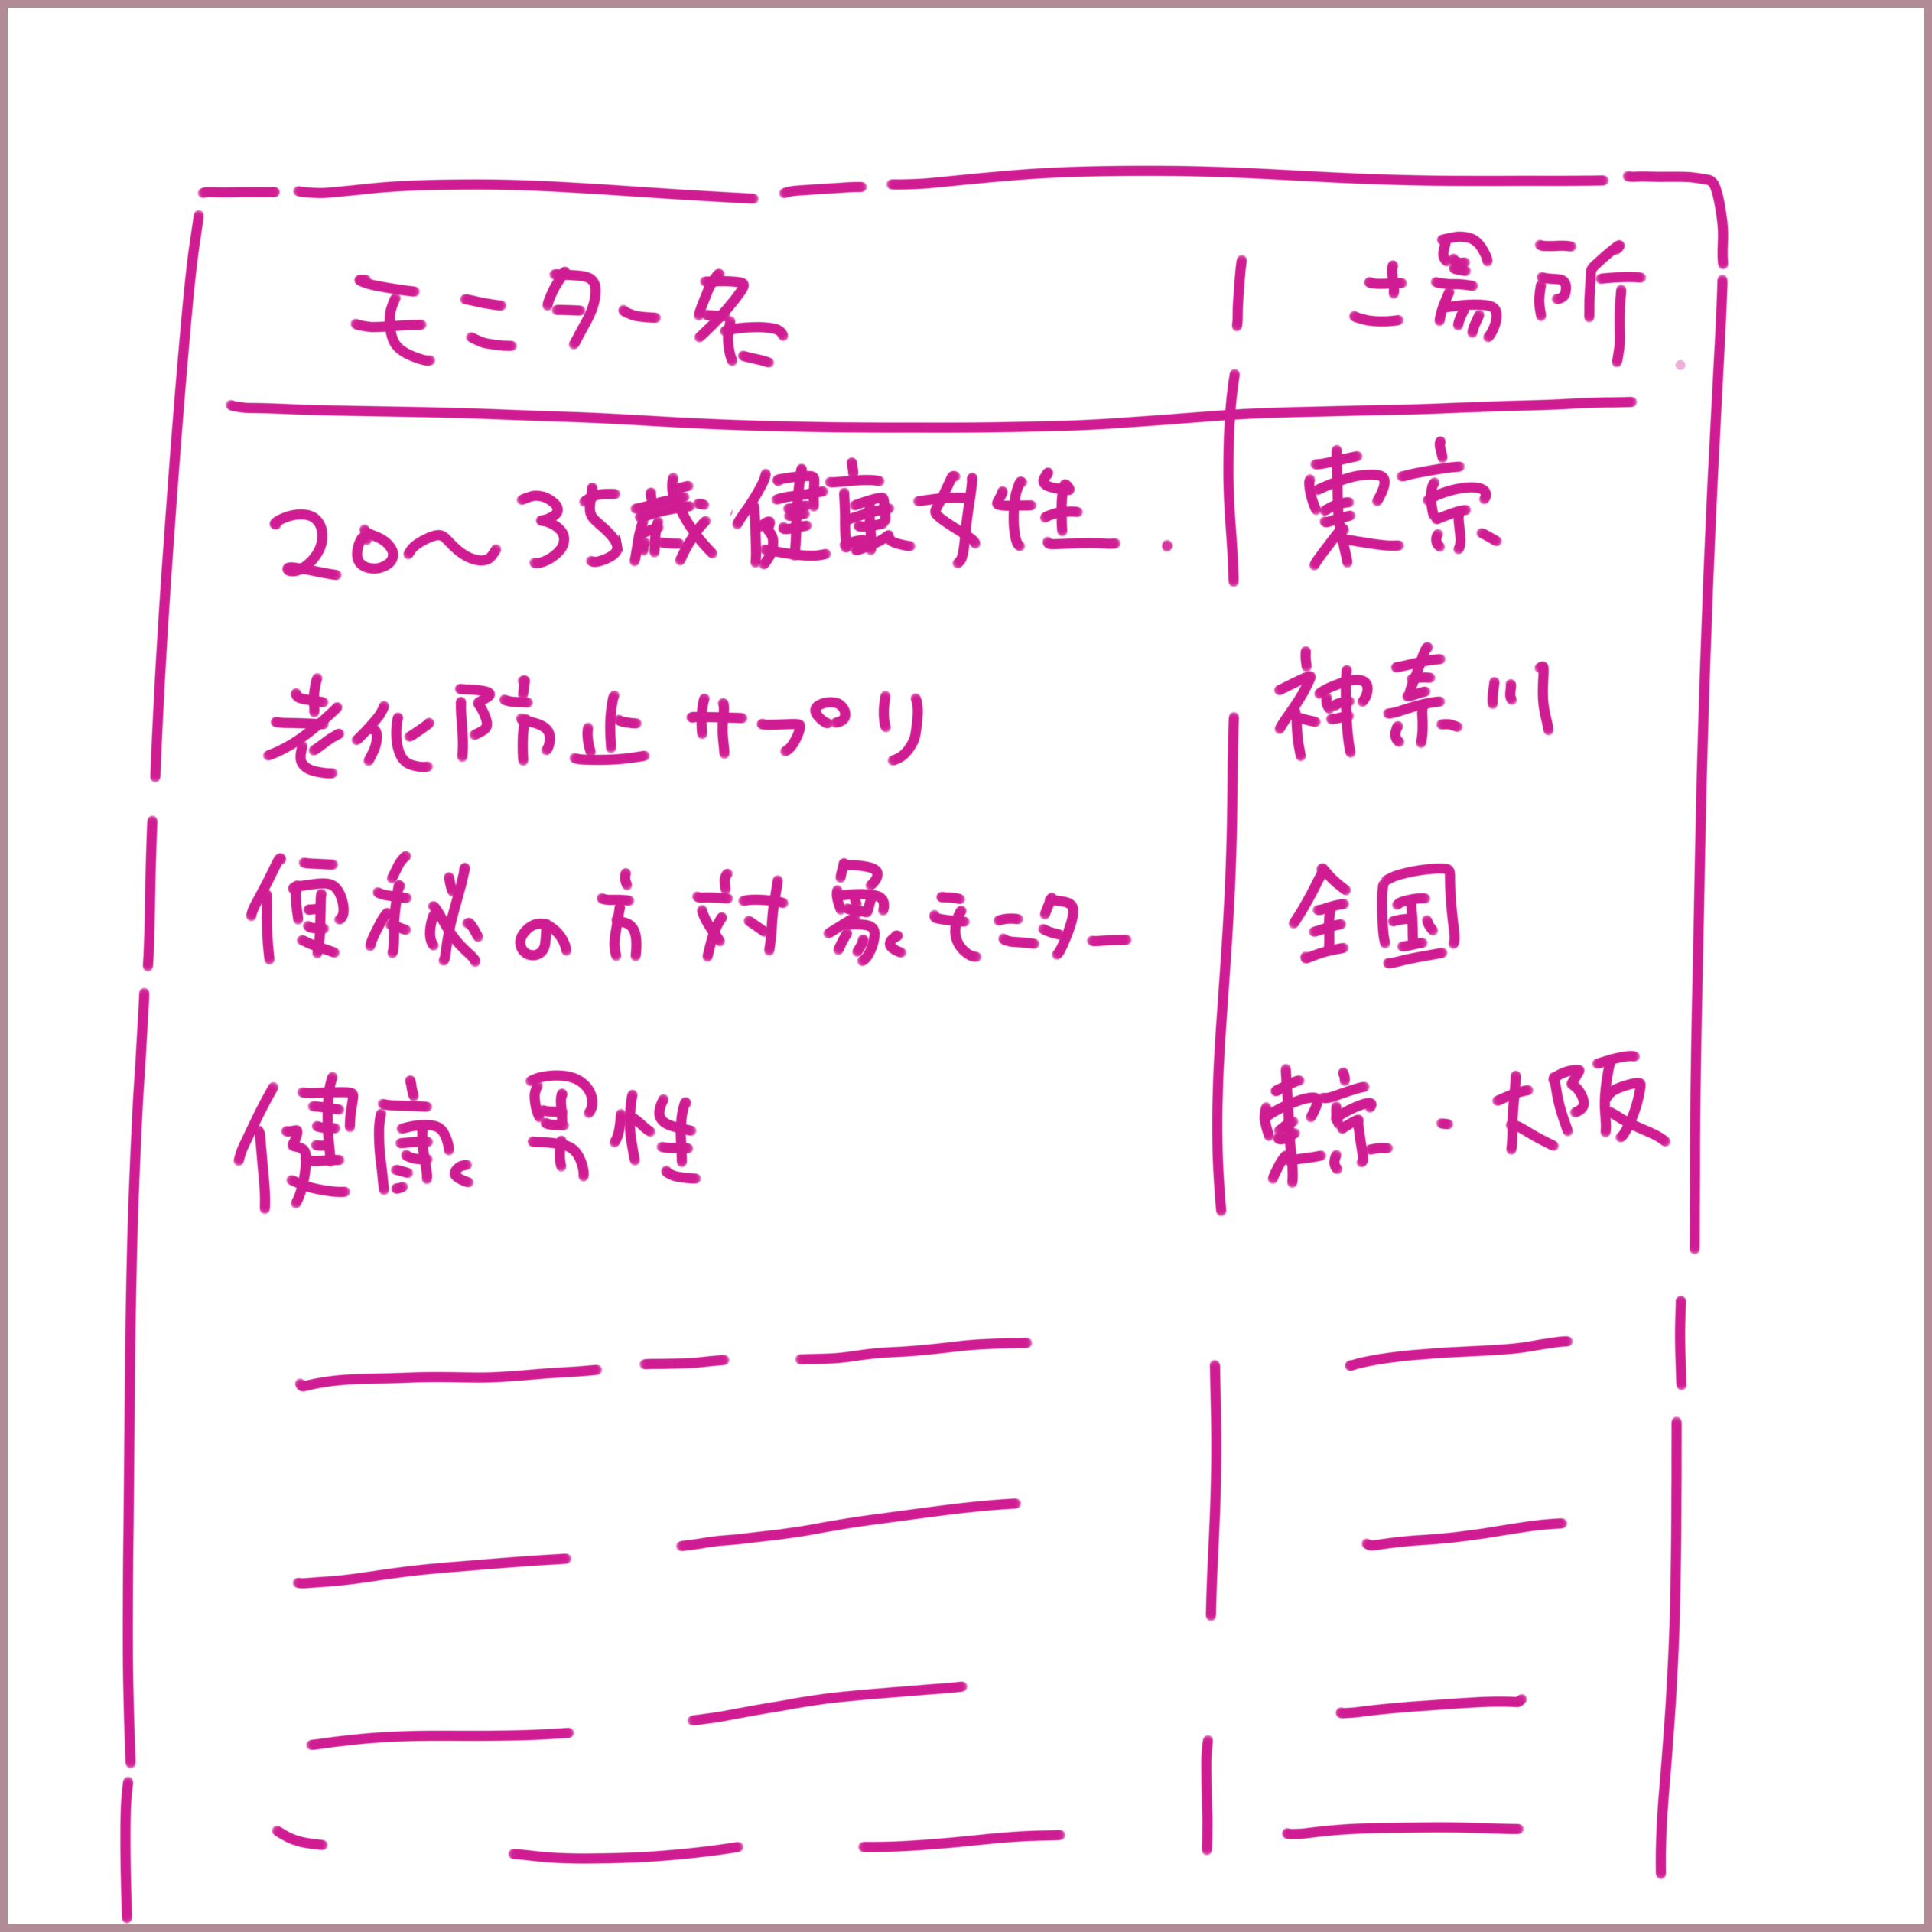 モニター名 場所
20〜35歳健康女性 東京
老化防止サプリ 神奈川
便秘の方対象モニター 全国
健康男性 東京・大阪